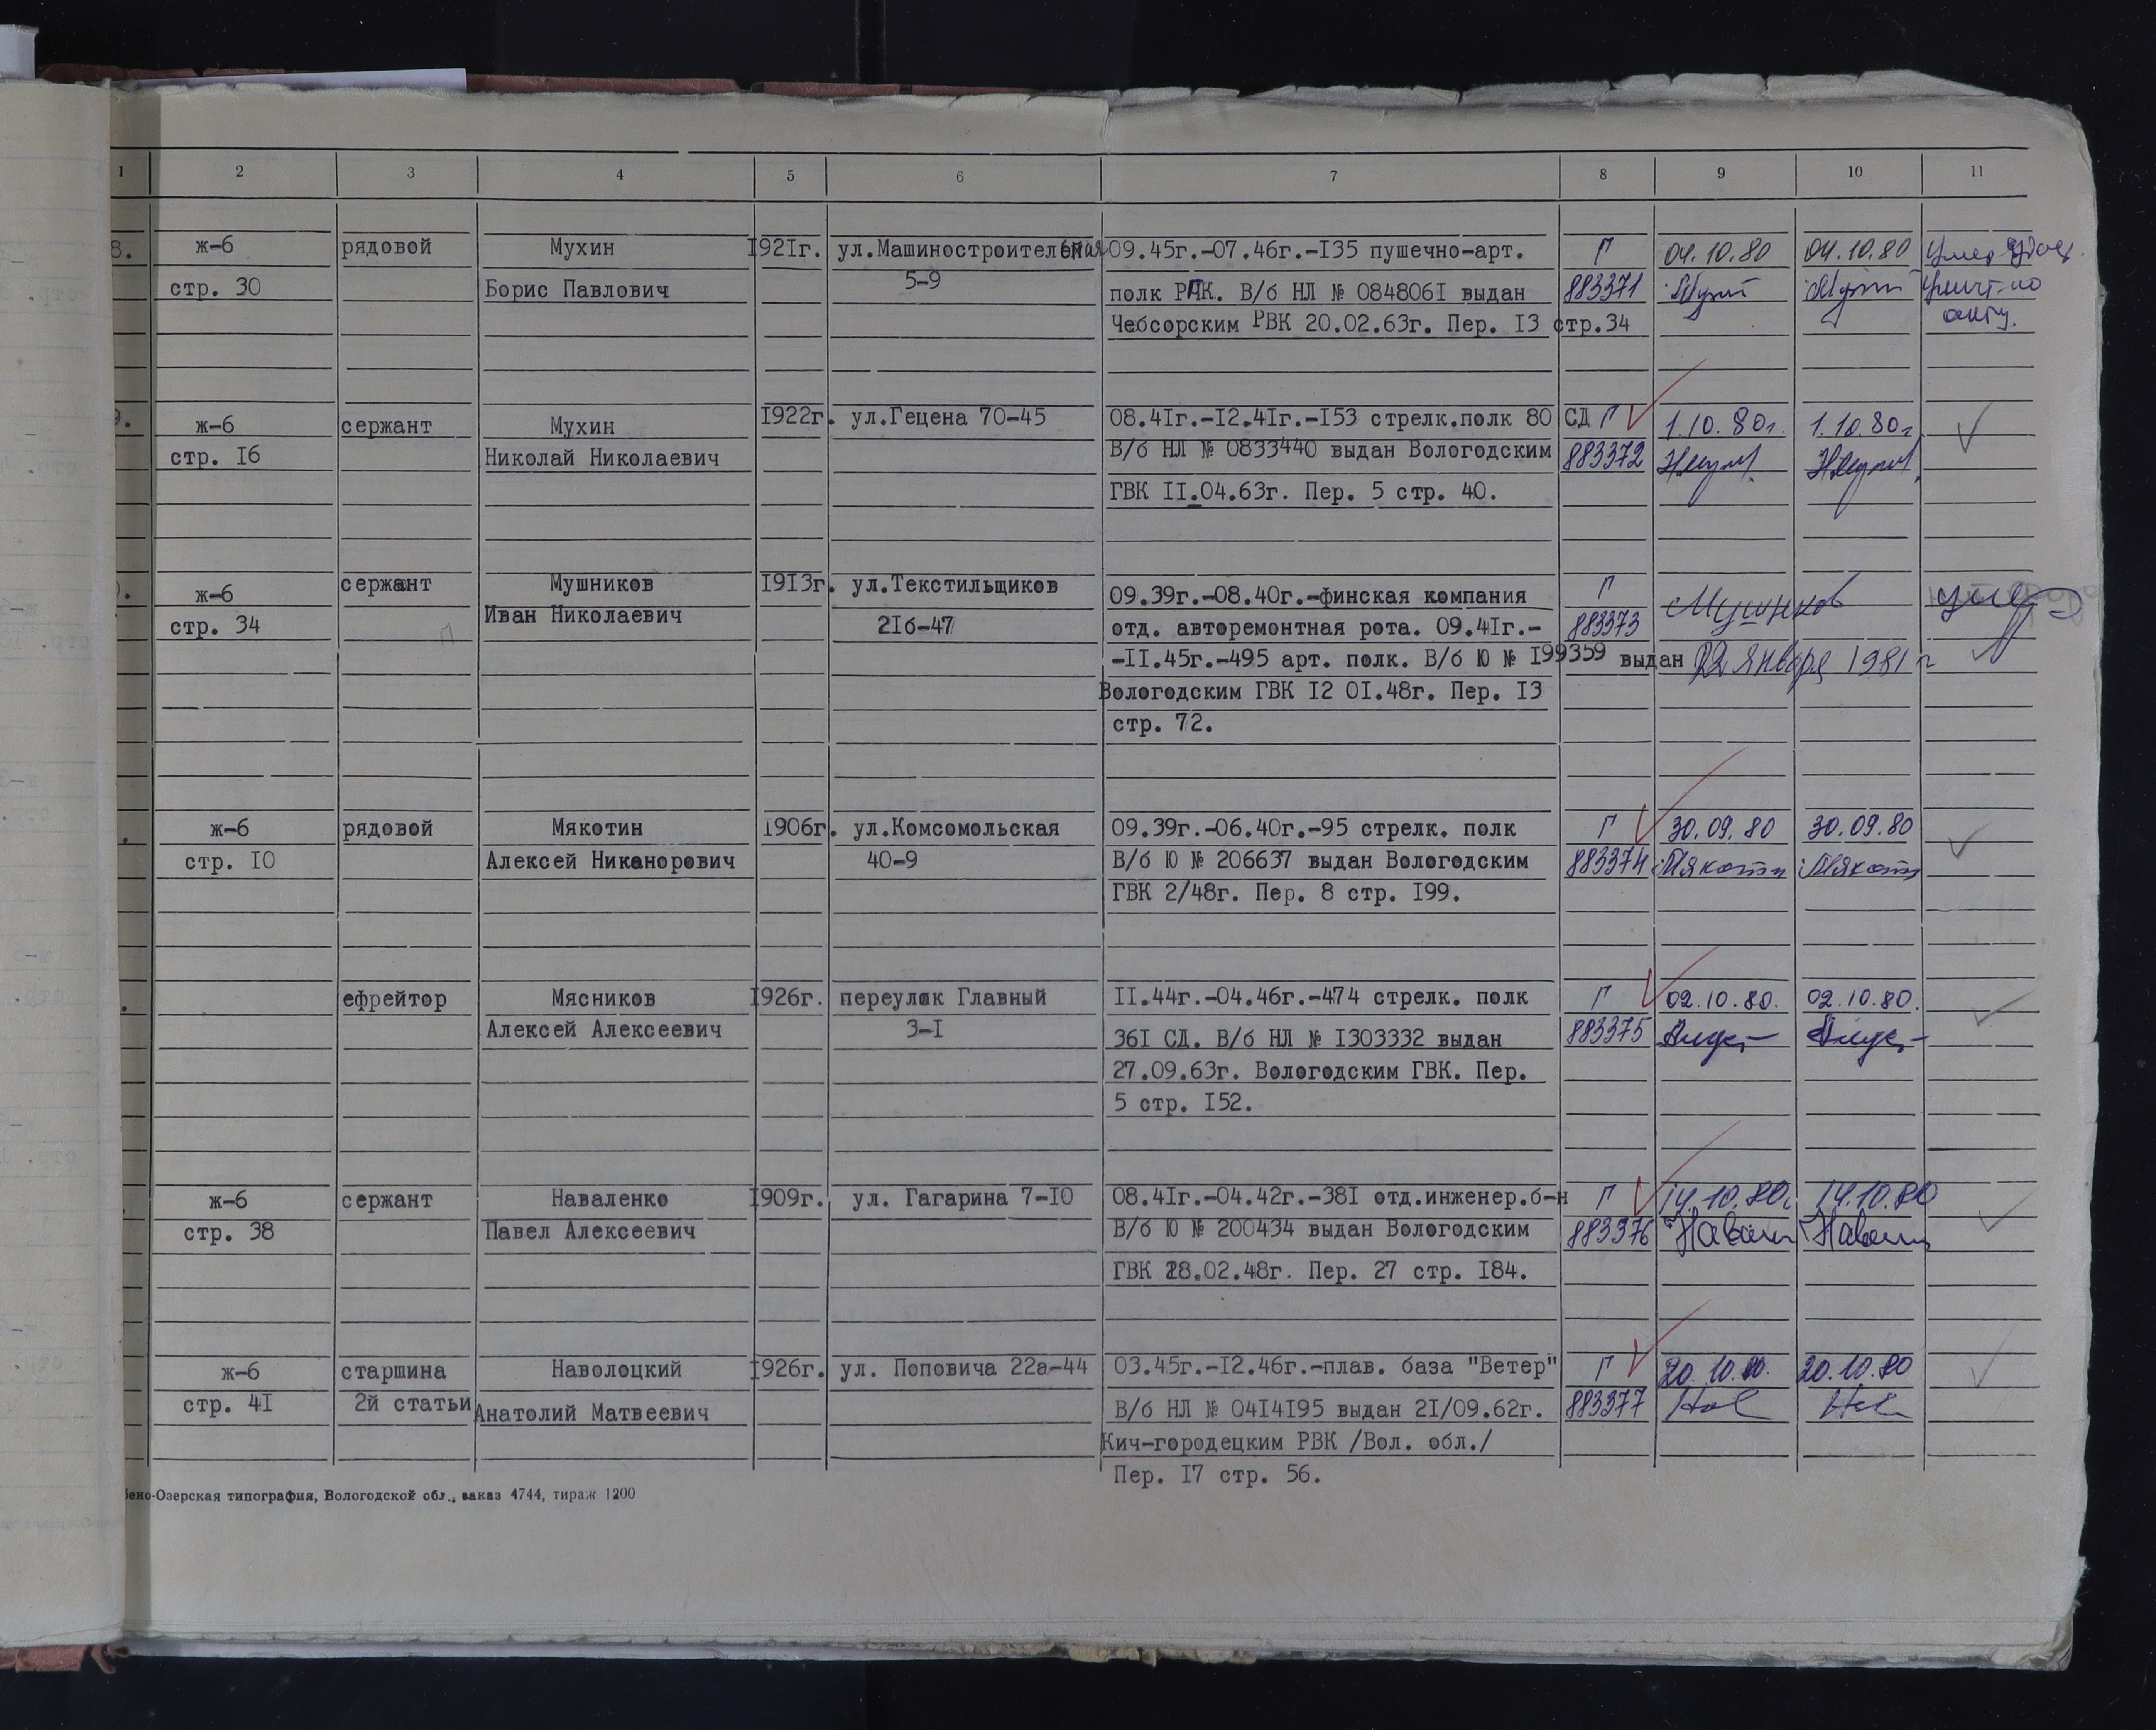 1 2 3 4 5 6 7 8 9 10 11
8. ж-б рядовой Мухин 1921г. ул.Машиностроительная 09.45г.-07.46г.-135 пушечно-арт. Г 04.10.80 04.10.80 Умер удост.
стр. 30 Борис Павлович 5-9 полк РАК. В/б НЛ № 0848061 выдан 883371
Чебсорским РВК 20.02.63г. Пер. 13 стр.34 акту.
9. ж-б сержант Мухин 1922г. ул.Гецена 70-45 08.41г.-12.41г.-153 стрелк.полк 80 СД Г 1.10.80г. 1.10.80г.
стр. 16 Николай Николаевич В/б НЛ № 0833440 выдан Вологодским 883372
ГВК 11.04.63г. Пер. 5 стр. 40.
ж-б сержант Мушников 1913г. ул.Текстильщиков 09.39г.-08.40г.-финская компания Г Мушников умер
стр. 34 Иван Николаевич 21б-47 отд. авторемонтная рота. 09.41г.- 883373
-11.45г.-495 арт. полк. В/б Ю № 199359 выдан 22 января 1981 г
Вологодским ГВК 12 01.48г. Пер. 13
стр. 72.
ж-б рядовой Мякотин 1906г. ул.Комсомольская 09.39г.-06.40г.-95 стрелк. полк Г 30.09.80 30.09.80
стр. 10 Алексей Никанорович 40-9 В/б Ю № 206637 выдан Вологодским 883374 Мякоти Мякоти
ГВК 2/48г. Пер. 8 стр. 199.
ефрейтор Мясников 1926г. переулок Главный 11.44г.-04.46г.-474 стрелк. полк Г 02.10.80. 02.10.80.
Алексей Алексеевич 3-1 361 СД. В/б НЛ № 1303332 выдан 883375
27.09.63г. Вологодским ГВК. Пер.
5 стр. 152.
ж-б сержант Наваленко 1909г. ул. Гагарина 7-10 08.41г.-04.42г.-381 отд.инженер.б-н Г 14.10.80. 14.10.80
стр. 38 Павел Алексеевич В/б Ю № 200434 выдан Вологодским 883376
ГВК 28.02.48г. Пер. 27 стр. 184.
ж-б старшина Наволоцкий 1926г. ул. Поповича 22а-44 03.45г.-12.46г.-плав. база "Ветер" Г 20.10.80. 20.10.80
стр. 41 2й статьи Анатолий Матвеевич В/б НЛ № 0414195 выдан 21/09.62г. 883377
Кич-городецким РВК /Вол. обл./
Пер. 17 стр. 56.
бено-Озерская типография, Вологодской обл., заказ 4744, тираж 1200